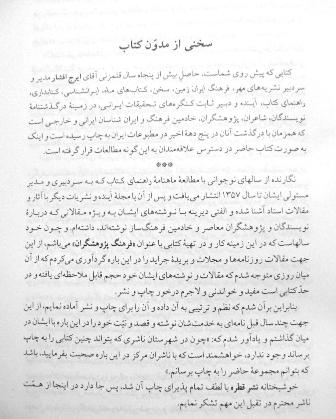 سخنی از مدوّن کتاب
کتابی که پیش روی شماست، حاصل بیش از پنجاه سال قلمزنی آقای ایرج افشار مدیر و
سردبیر نشریه‌های مهر، فرهنگ ایران زمین، سخن، کتاب‌های ماه، ایرانشناسی، کتابداری،
راهنمای کتاب، آینده و دبیر ثابت کنگره‌های تحقیقات ایرانی، در زمینهٔ درگذشتنامهٔ
نویسندگان، شاعران، پژوهشگران، خادمین فرهنگ و ایران شناسان ایرانی و خارجی است
که همزمان با درگذشت آنان در پنج دههٔ اخیر در مطبوعات ایران به چاپ رسیده است و اینک
به صورت کتاب حاضر در دسترس علاقه‌مندان به این‌گونه مطالعات قرار گرفته است.
***
نگارنده از سالهای نوجوانی با مطالعهٔ ماهنامهٔ راهنمای کتاب که به سردبیری و مدیر
مسئولی ایشان تا سال ۱۳۵۷ انتشار می‌یافت و پس از آن با مجلهٔ آینده و نشریات دیگر با آثار و
مقالات استاد آشنا شده و الفتی دیرینه با نوشته‌های ایشان به ویژه مقالاتی که دربارهٔ
نویسندگان و پژوهشگران معاصر و خادمین فرهنگ‌ساز نوشته‌اند، داشته‌ام، و چون خود
سالهاست که در این زمینه کار و در تهیهٔ کتابی با عنوان «فرهنگ پژوهشگران» می‌باشم، از این
جهت مقالات روزنامه‌ها و مجلات و بریدهٔ جراید را در این باره گردآوری می‌کردم که از آن
میان روزی متوجه شدم که مقالات و نوشته‌های ایشان خود حجم قابل ملاحظه‌ای یافته و در
حد کتابی است مفید و خواندنی و لاجرم درخور چاپ و نشر.
بنابراین برآن شدم که نظم و ترتیبی به آن داده و آن را برای چاپ و نشر آماده نمایم، از این
جهت چند سال قبل نامه‌ای به خدمت‌شان نوشته و قصد و نیّت خود را در این باره با ایشان در
میان گذاشتم و یادآور شدم که: «چون در شهرستان ناشری که بتواند چنین کتابی را به چاپ
برساند وجود ندارد، خواهشمند است که با ناشران مرکز در این باره صحبت بفرمایید، باشد
که بتوانم مجموعهٔ حاضر را به چاپ برسانم.»
خوشبختانه نشر قطره با لطف تمام پذیرای چاپ آن شد، پس جا دارد در اینجا از همّت
ناشر محترم در تقبل این مهم تشکر نمایم.